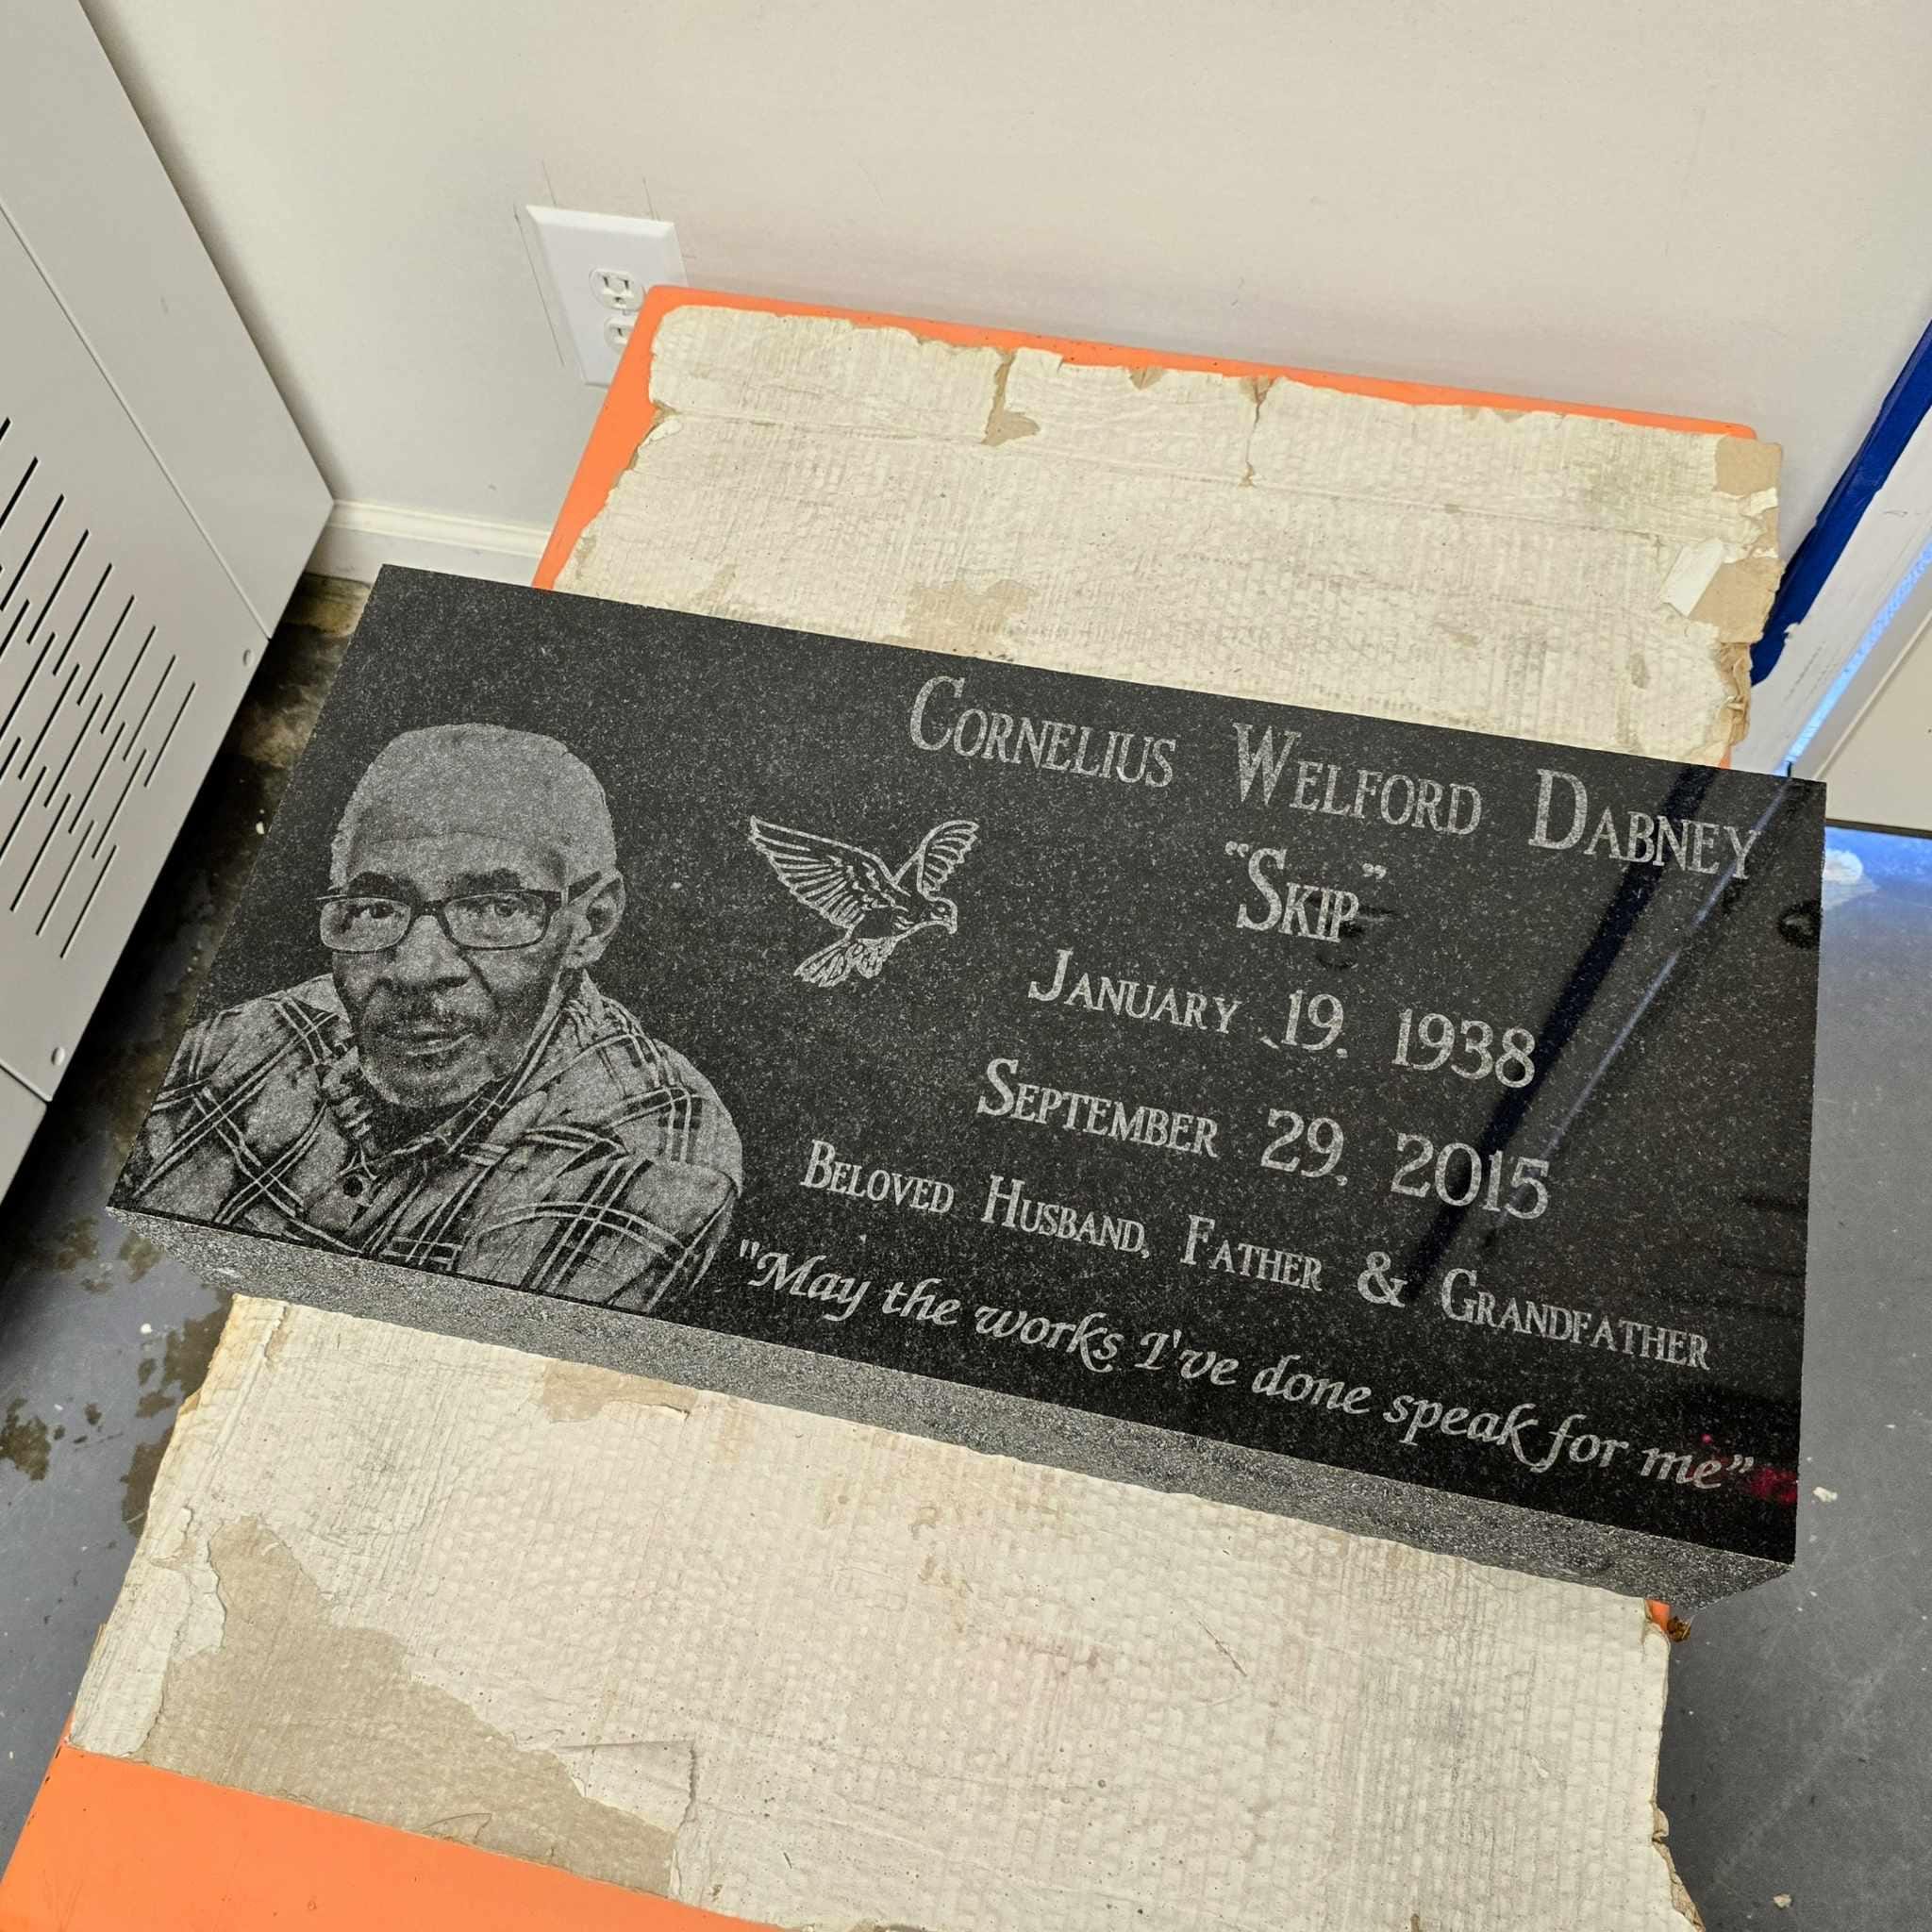 Cornelius Welford Dabney
"Skip"
January 19, 1938
September 29, 2015
Beloved Husband, Father & Grandfather
"May the works I've done speak for me”